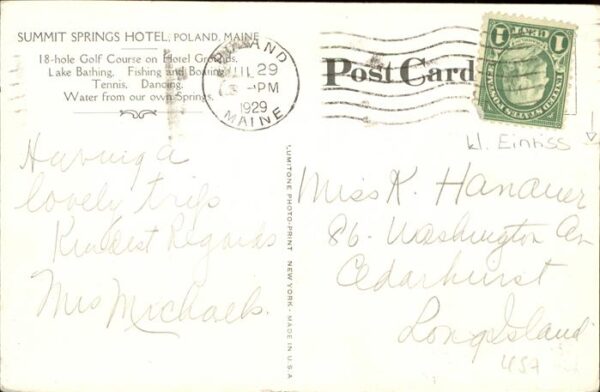 SUMMIT SPRINGS HOTEL, POLAND, MAINE
18-hole Golf Course on Hotel Grounds.
Lake Bathing, Fishing and Boating
Tennis, Dancing.
Water from our own Springs.
POLAND
JUL 29
3 - PM
1929
MAINE
Post Card
1 1
UNITED STATES POSTAGE
kl. Einriss
Having a
lovely trip
Kindest Regards
Mrs Michaels.
LUMITONE PHOTO-PRINT NEW YORK - MADE IN U.S.A.
Miss K. Hanauer
86- Washington Av
Cedarhurst
Long Island
USA